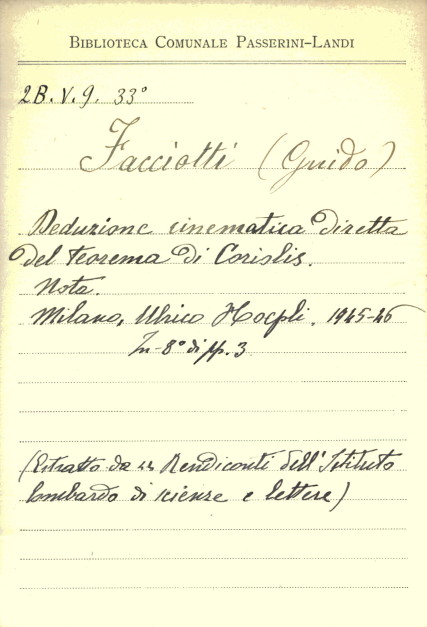 BIBLIOTECA COMUNALE PASSERINI-LANDI
2B. V. 9. 33°
Facciotti (Guido)
Deduzione cinematica diretta
del teorema di Coriolis.
Nota.
Milano, Ulrico Hoepli. 1945-46
In-8° di pp. 3
(Estratto da "Rendiconti dell'Istituto
lombardo di scienze e lettere)